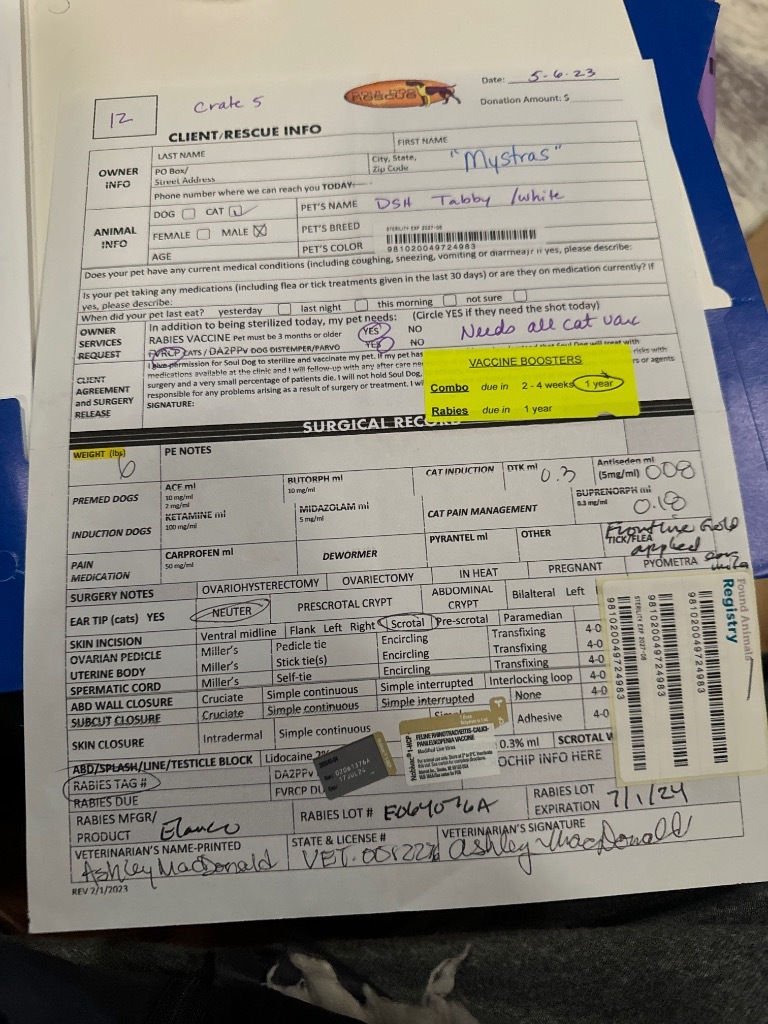 Date: 5-6-23
12
Crate 5
Donation Amount: $
CLIENT/RESCUE INFO
OWNER INFO
LAST NAME
FIRST NAME
PO Box/
Street Address
City, State,
Zip Code
"Mystras"
Phone number where we can reach you TODAY:
ANIMAL INFO
DOG CAT
PET'S NAME DSH Tabby /white
FEMALE MALE
PET'S BREED
STERILITY EXP 2027-08
AGE
PET'S COLOR
981020049724983
Does your pet have any current medical conditions (including coughing, sneezing, vomiting or diarrhea)? If yes, please describe:
Is your pet taking any medications (including flea or tick treatments given in the last 30 days) or are they on medication currently? If
yes, please describe:
When did your pet last eat? yesterday last night this morning not sure
OWNER SERVICES REQUEST
In addition to being sterilized today, my pet needs: (Circle YES if they need the shot today)
RABIES VACCINE Pet must be 3 months or older YES NO
Needs all cat vacc
FVRCP CATS / DA2PPV DOG DISTEMPER/PARVO YES NO
CLIENT AGREEMENT and SURGERY RELEASE
I give permission for Soul Dog to sterilize and vaccinate my pet. If my pet has
medications available at the clinic and I will follow-up with any after care
surgery and a very small percentage of patients die. I will not hold Soul Dog,
responsible for any problems arising as a result of surgery or treatment. I
SIGNATURE:
risks with
rs or agents
VACCINE BOOSTERS
Combo due in 2 - 4 weeks 1 year
Rabies due in 1 year
SURGICAL REC
WEIGHT (lbs) 6
PE NOTES
PREMED DOGS
ACE ml
10 mg/ml
2 mg/ml
BUTORPH ml
10 mg/ml
CAT INDUCTION
DTK ml 0.3
Antiseden ml
(5mg/ml) 008
INDUCTION DOGS
KETAMINE ml
100 mg/ml
MIDAZOLAM ml
5 mg/ml
CAT PAIN MANAGEMENT
BUPRENORPH ml
0.3 mg/ml 0.18
PAIN MEDICATION
CARPROFEN ml
50 mg/ml
DEWORMER
PYRANTEL ml
OTHER
TICK/FLEA
Frontline Gold
applied
SURGERY NOTES
OVARIOHYSTERECTOMY
OVARIECTOMY
IN HEAT
PREGNANT
PYOMETRA
EAR TIP (cats) YES
NEUTER
PRESCROTAL CRYPT
ABDOMINAL CRYPT
Bilateral Left
SKIN INCISION Ventral midline Flank Left Right Scrotal Pre-scrotal Paramedian
OVARIAN PEDICLE Miller's Pedicle tie Encircling Transfixing 4-0
UTERINE BODY Miller's Stick tie(s) Encircling Transfixing 4-0
SPERMATIC CORD Miller's Self-tie Encircling Transfixing 4-0
ABD WALL CLOSURE Cruciate Simple continuous Simple interrupted Interlocking loop 4-0
SUBCUT CLOSURE Cruciate Simple continuous Simple interrupted None 4-0
SKIN CLOSURE Intradermal Simple continuous Adhesive 4-0
Found Animals
Registry
981020049724983
981020049724983
981020049724983
STERILITY EXP 2027-08
ABD/SPLASH/LINE/TESTICLE BLOCK Lidocaine 0.3% ml SCROTAL
RABIES TAG #
DA2PPv
OCHIP INFO HERE
RABIES DUE
FVRCP DU
02061376A
17JUL24
Nobivac 1-HCP
FELINE RHINOTRACHEITIS-CALICI-
PANLEUKOPENIA VACCINE
Modified Live Virus
RABIES MFGR/
PRODUCT Elanco
RABIES LOT # E064076A
RABIES LOT
EXPIRATION 7/1/24
VETERINARIAN'S NAME-PRINTED
Ashley MacDonald
STATE & LICENSE #
VETERINARIAN'S SIGNATURE
Ashley MacDonald
REV 2/1/2023